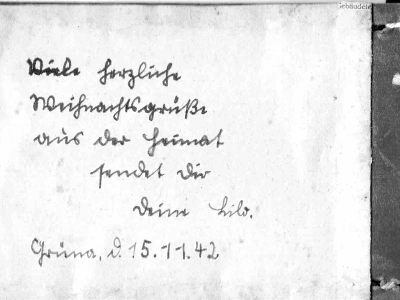 Gebäudete
Viele herzliche
Weihnachtsgrüße
aus der Heimat
sendet dir
Deine Lilo.
Grüna, d. 15.11.42